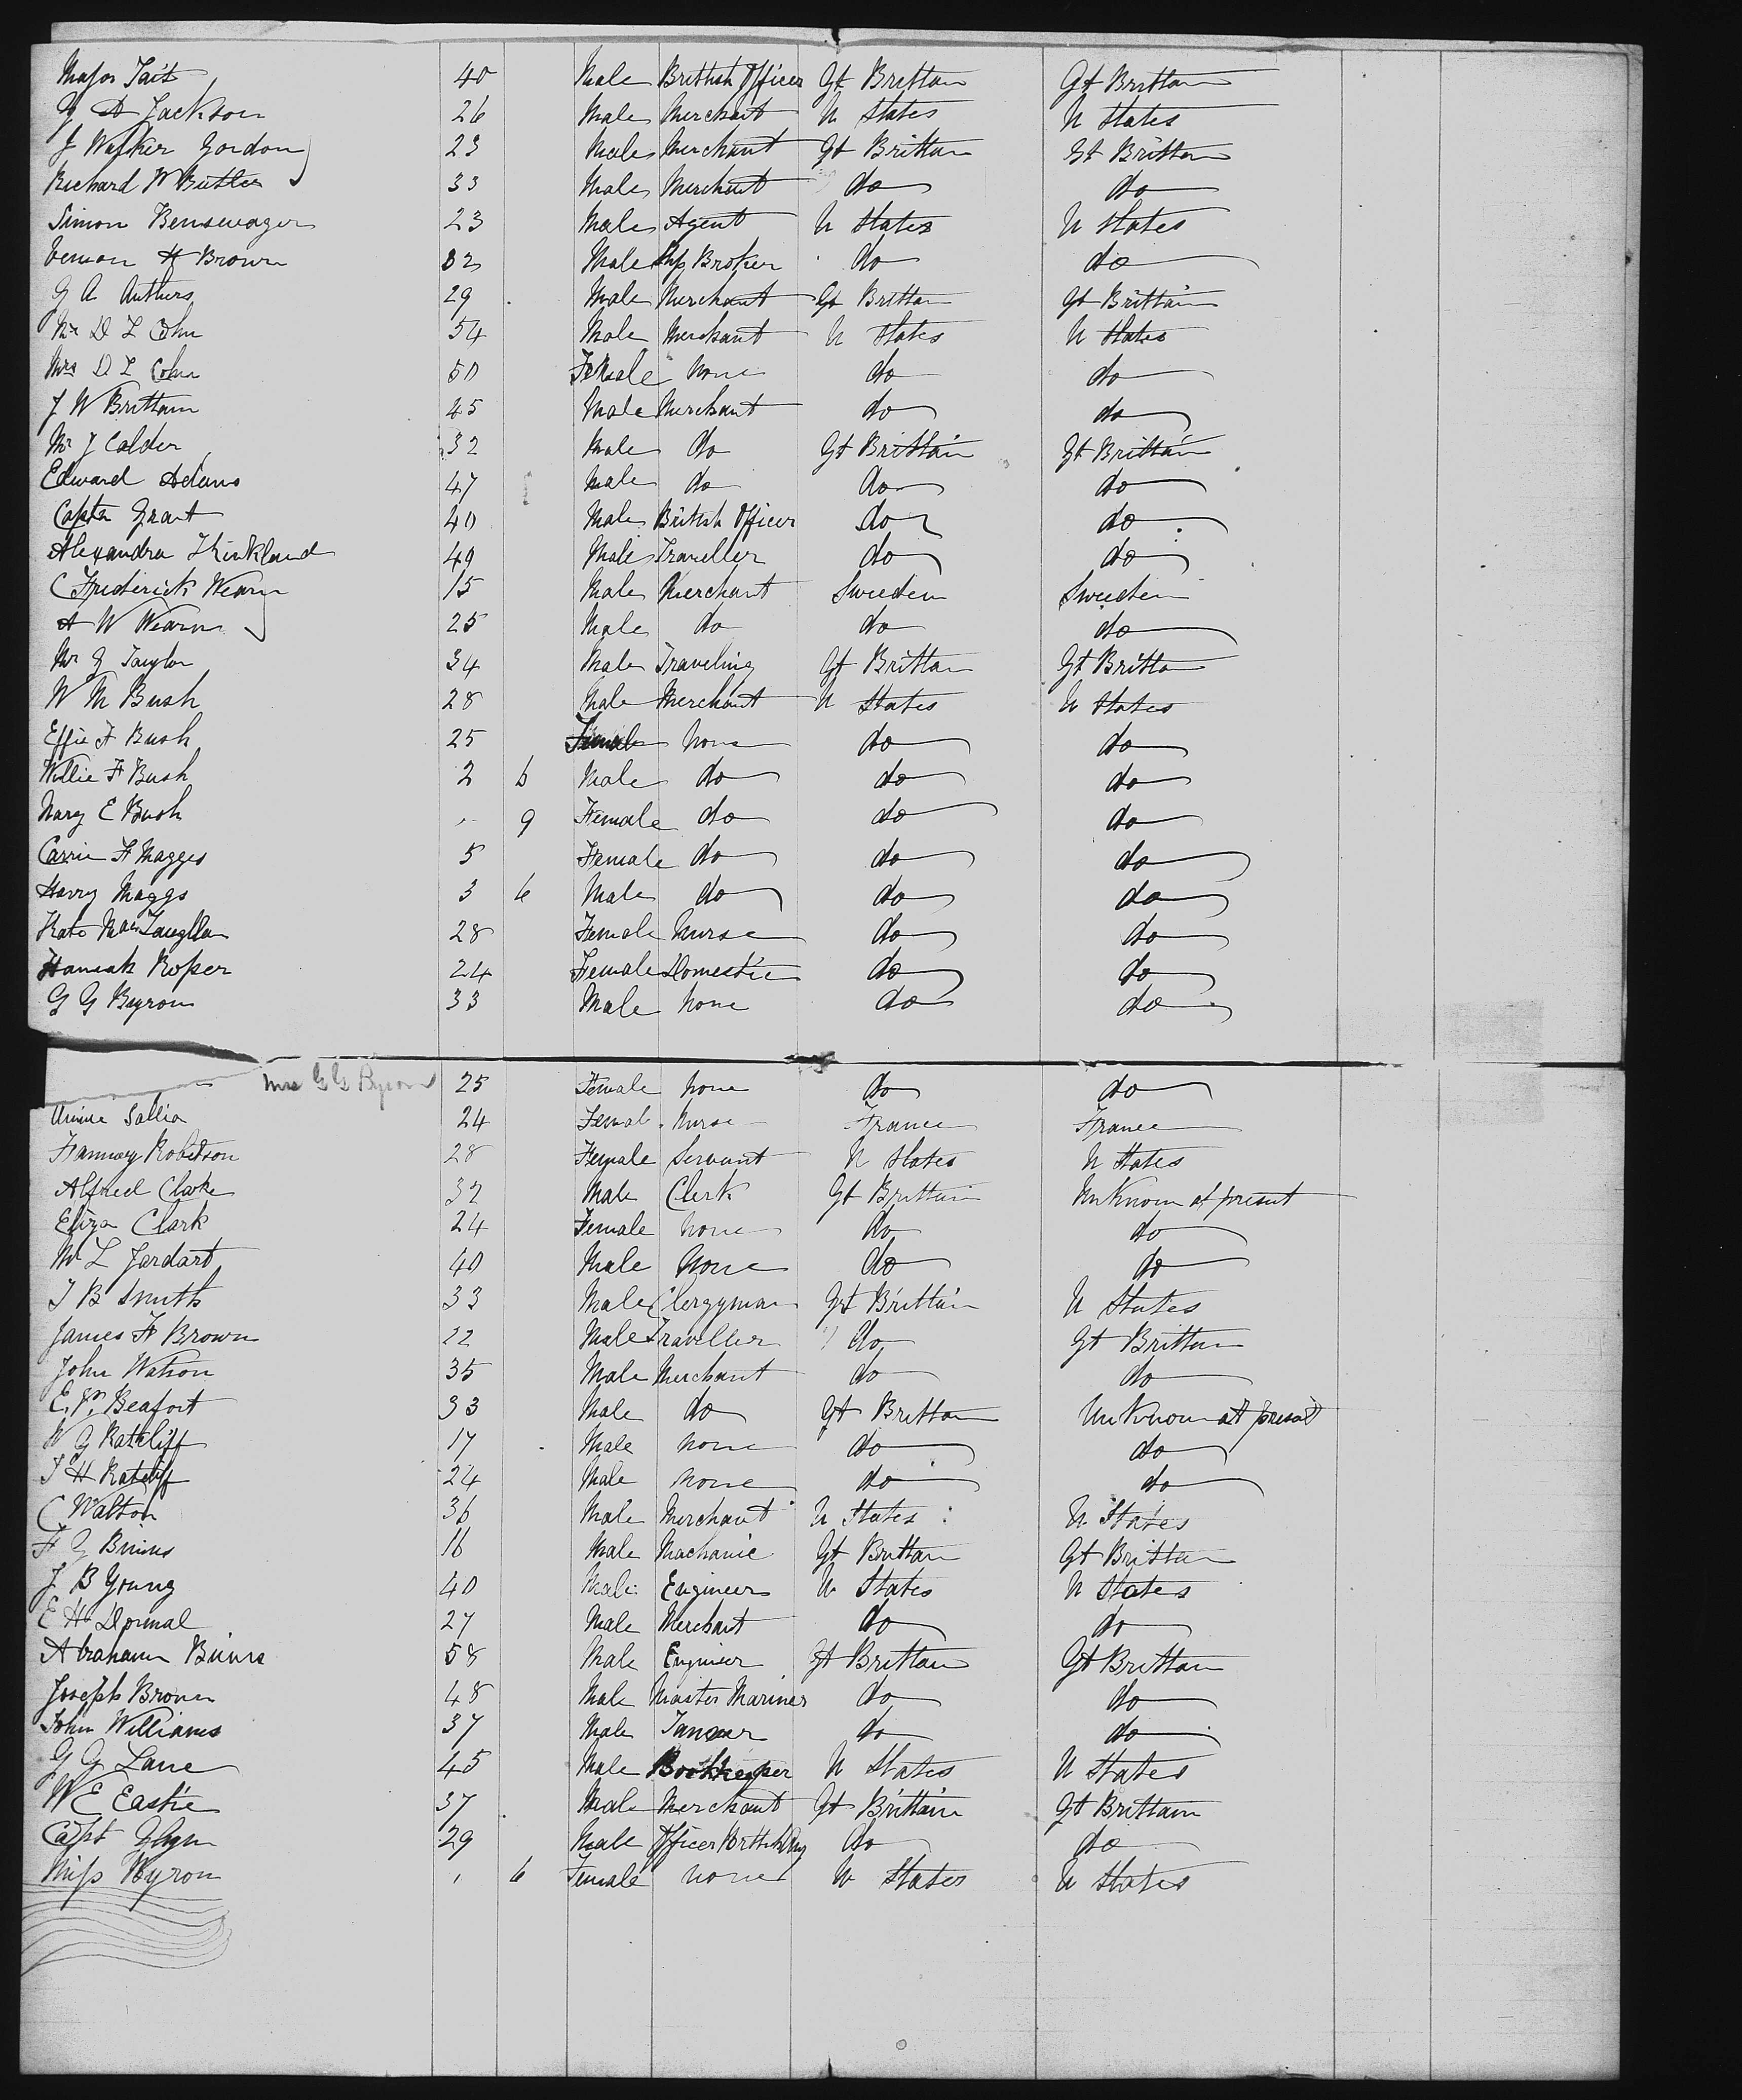 Major Tait 40 Male Brittish Officer Gt Brittan Gt Brittan
G A Jackson 26 Male Merchant U States U States
J Walker Gordon 23 Male Merchant Gt Brittan Gt Brittan
Richard W Butler 33 Male Merchant do do
Simon Bensewager 23 Male Agent U States U States
Vernon H Brown 32 Male Shp Broker do do
G A Authurs 29 Male Merchant Gt Brittan Gt Brittain
Mr D L Cohn 54 Male Merchant U States U States
Mrs D L Cohn 50 Female None do do
J W Brittain 45 Male Merchant do do
Mr J Calder 32 Male do Gt Brittain Gt Brittain
Edward Adams 47 Male do do do
Captn Grant 40 Male British Officer do do
Alexandra Kirkland 49 Male Traveller do do
C Frederick Wearn 15 Male Merchant Sweeden Sweeden
A W Wearn 25 Male do do do
Mr G Taylor 34 Male Traveling Gt Brittan Gt Britta
W M Bush 28 Male Merchant U States U States
Effie F Bush 25 Female None do do
Willie F Bush 2 6 Male do do do
Mary E Bush 9 Female do do do
Carrie F Magges 5 Female do do do
Harry Maggs 3 6 Male do do do
Kate MacLaughlan 28 Female Nurse do do
Hannah Roper 24 Female Domestic do do
G G Byron 33 Male None do do
Mrs G G Byron 25 Female None do do
Annie Sallia 24 Female Nurse France France
Fannwy Robetson 28 Female Servant U States U States
Alfred Clarke 32 Male Clerk Gt Brittain Unknown at present
Eliza Clark 24 Female None do do
Mr L Jardart 40 Male None do do
J B Smith 33 Male Clergyman Gt Brittain U States
James H Brown 22 Male Traveller do Gt Brittan
John Watson 35 Male Merchant do do
E. Beafort 33 Male do Gt Brittan Unknown at present
W G Ratcliff 17 Male None do do
J H Ratcliff 24 Male None do do
C Walton 36 Male Merchant U States U States
F G Binns 16 Male Machanic Gt Brittan Gt Brittan
J B Young 40 Male Engineer U States U States
E H Dormal 27 Male Merchant do do
Abraham Binns 58 Male Engineer Gt Brittan Gt Brittan
Joseph Brown 48 Male Master Mariner do do
John Williams 37 Male Tanner do do
G G Lane 45 Male Bookkeeper U States U States
W E Eastie 37 Male Merchant Gt Brittain Gt Brittain
Capt Glyn 29 Male Officer do do
Miss Byron 6 Female None U States U States